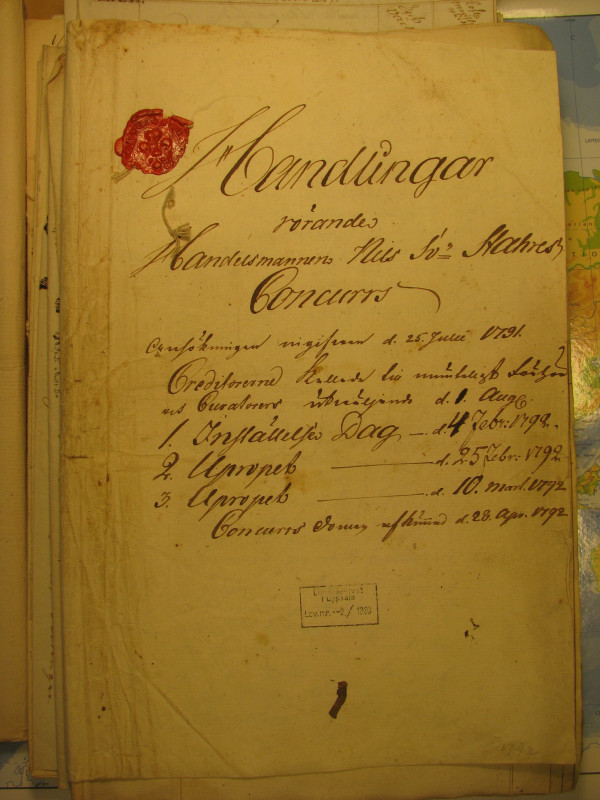 Handlingar
rörande
Handelsmannens Nils Sv:s Stahres
Concurrs
Ansökningen ingifven d. 25. Julii 1791.
Creditorerne kallade til munteligt
Curatorers utväljande d. 1. Aug
1. Inställelse Dag — d. 4 Febr: 1792.
2. Upropet — d. 25 Febr: 1792
3. Upropet — d. 10. mart. 1792
Concurrs Domen afkunnad d. 28. Apr. 1792
i Uppsala